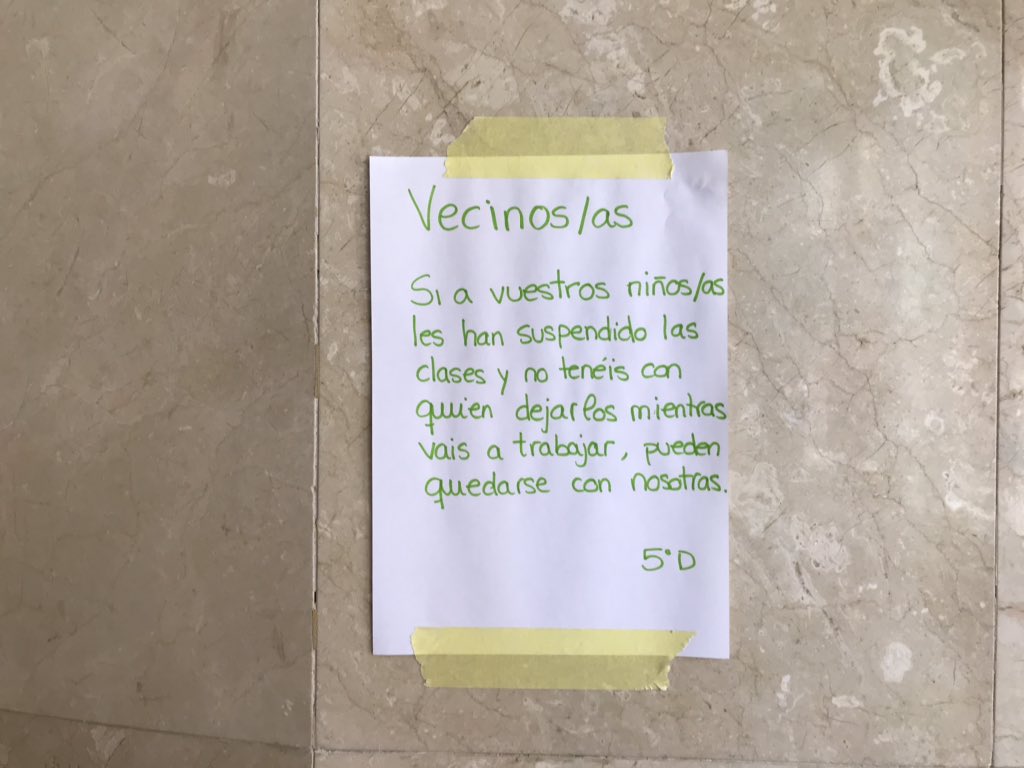 Vecinos/as
Si a vuestros niños/as
les han suspendido las
clases y no tenéis con
quien dejarlos mientras
vais a trabajar, pueden
quedarse con nosotras.
5ºD